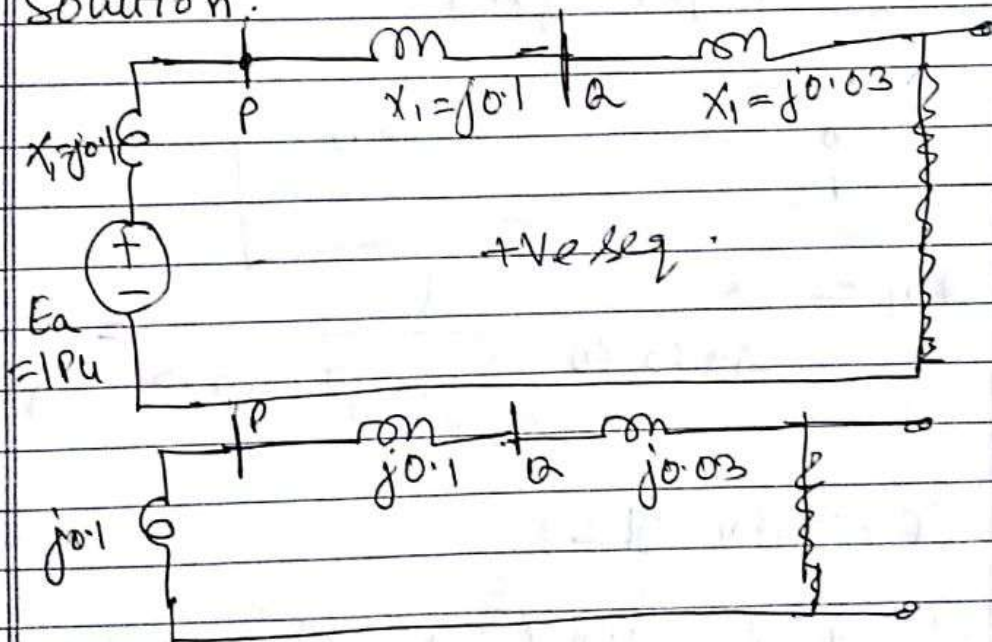 Solution:
P X₁=j0.1 Q X₁=j0.03
X₁=j0.1
+ve seq.
+
-
Ea
=1PU
P
j0.1 Q j0.03
j0.1